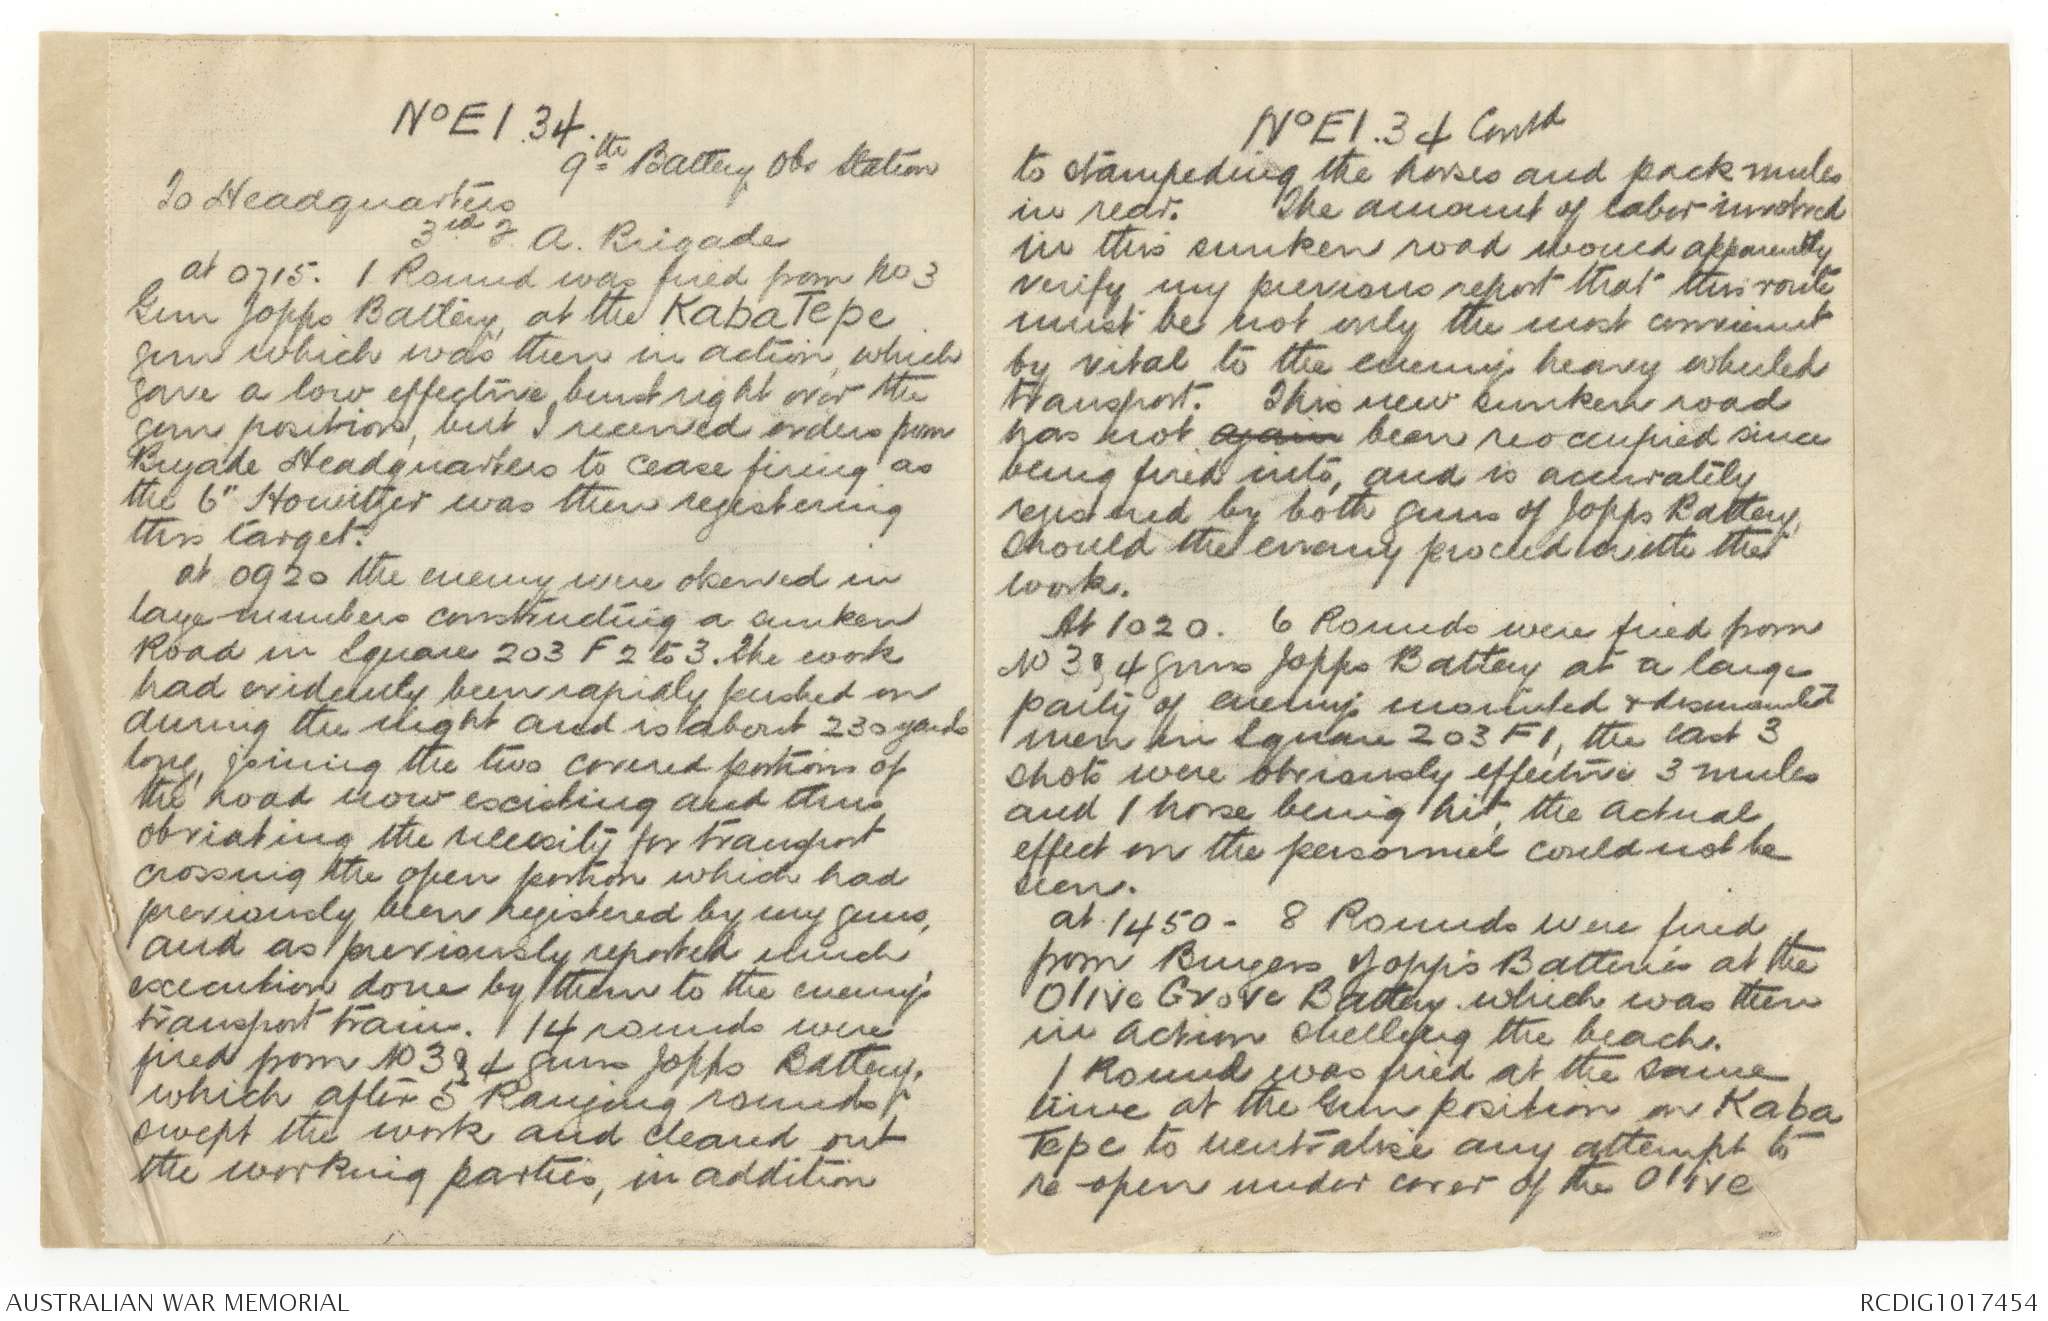 No E1.34.
9th Battery Obs Station
To Headquarters
3rd F. A. Brigade
at 0715. 1 Round was fired from No 3
Gun Jopps Battery, at the Kaba Tepe
gun which was then in action, which
gave a low effective burst right over the
gun position, but I received orders from
Brigade Headquarters to cease firing as
the 6" Howitzer was then registering
this target.
at 0920 the enemy were oberved in
large numbers constructing a sunken
Road in Square 203 F 2 to 3. The work
had evidently been rapidly pushed on
during the night and is about 230 yards
long, joining the two covered portions of
the road now excisting and thus
obviating the necessity for transport
crossing the open portion which had
previously been registered by my guns,
and as previously reported much
execution done by them to the enemys
transport train. 14 rounds were
fired from No 3 & 4 guns Jopps Battery,
which after 5 Ranging rounds,
swept the work and cleared out
the working parties, in addition
No E1.34 Contd
to stampeding the horses and pack mules
in rear. The amount of labor involved
in this sunken road would apparently
verify my previous report that this route
must be not only the most convienient
by vital to the enemys heavy wheeled
transport. This new sunken road
has not again been reoccupied since
being fired into, and is accurately
regisred by both guns of Jopps Battery,
should the enemy proceed with the
work.
At 1020. 6 Rounds were fired from
No 3 & 4 guns Jopps Battery at a large
party of enemys mounted & dismounted
men in Square 203 F1, the last 3
shots were obviously effective 3 mules
and 1 horse being hit, the actual
effect on the personnel could not be
seen.
at 1450 - 8 Rounds were fired
from Burgess & Jopp's Batteries at the
Olive Grove Battery which was then
in action shelling the beach.
1 Round was fired at the same
time at the Gun position on Kaba
Tepe to neutralise any attempt to
re-open under cover of the Olive
AUSTRALIAN WAR MEMORIAL
RCDIG1017454